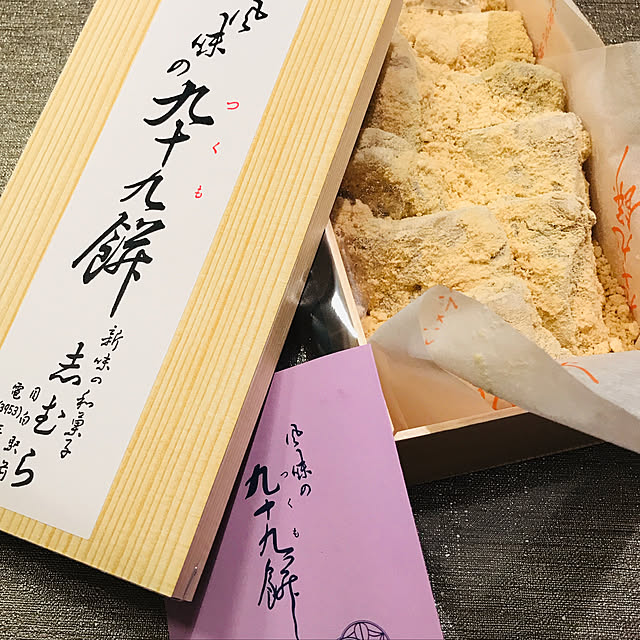 風味の
九十九餅
つくも
新味の和菓子
志むら
目白駅
電
(3953)
風味の
九十九餅
つくも